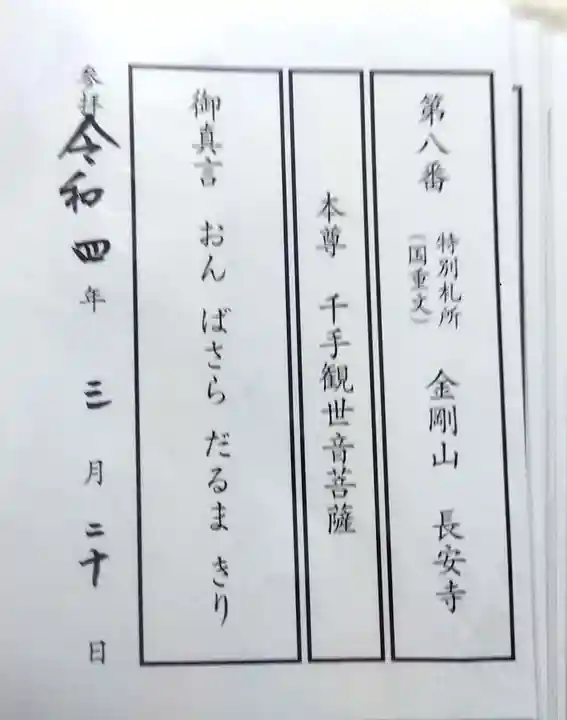 第八番 特別札所 (国重文) 金剛山 長安寺
本尊 千手観世音菩薩
御真言 おん ばさら だるま きり
参拝 令和四年 三月 二十日